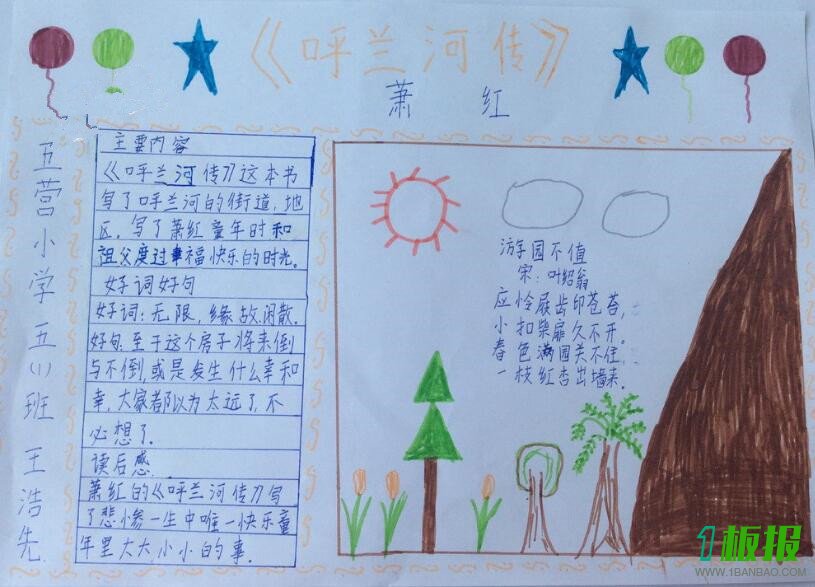 《呼兰河传》
萧 红
五营小学五(1)班 王浩先
主要内容
《呼兰河传》这本书
写了呼兰河的街道,地
区,写了萧红童年时和
祖父度过幸福快乐的时光。
好词好句
好词:无限,缘故,闲散.
好句:至于这个房子将来倒
与不倒,或是发生什么幸和
幸,大家都以为太远了,不
必想了.
读后感.
萧红的《呼兰河传》写
了悲惨一生中唯一快乐童
年里大大小小的事.
游园不值
宋:叶绍翁
应怜屐齿印苍苔,
小扣柴扉久不开。
春色满园关不住,
一枝红杏出墙来。
1板报
WWW.1BANBAO.COM